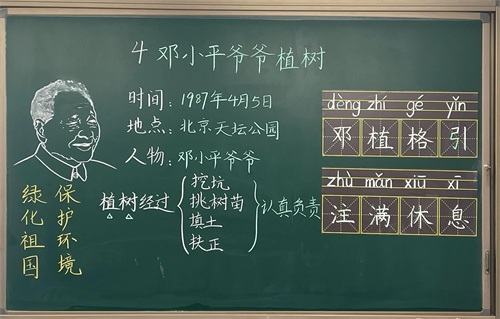 4 邓小平爷爷植树
时间：1987年4月5日
地点：北京天坛公园
人物：邓小平爷爷
植树经过
挖坑
挑树苗
填土
扶正
认真负责
保护环境
绿化祖国
dèng zhí gé yǐn
邓植格引
zhù mǎn xiū xī
注满休息